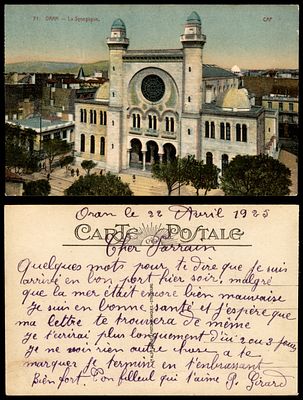 71. ORAN — La Synagogue.
CAP
Oran le 22 Avril 1925
CARTE POSTALE
Cher Parrain
Quelques mots pour te dire que je suis
arrivé en bon port hier soir, malgré
que la mer était encore bien mauvaise
Je suis en bonne santé et j'espère que
ma lettre te trouvera de même
Je t'ecrirai plus longuement d'ici 2 ou 3 jours
Je ne vois rien autre chose a te
marquer je termine en t'embrassant
bien fort. Ton filleul qui t'aime P. Girard